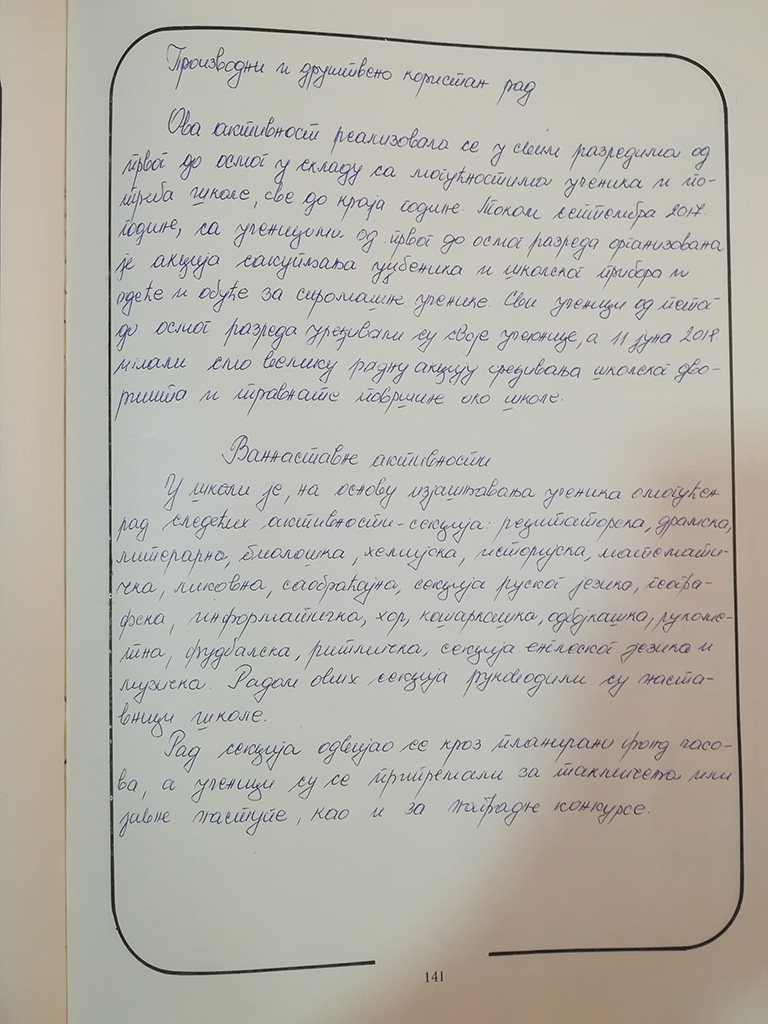 Производни и друштвено користан рад
Ова активност реализовала се у свим разредима од
првог до осмог у складу са могућностима ученика и по-
треба школе, све до краја године. Током септембра 2017.
године, са ученицима од првог до осмог разреда организована
је акција сакупљања уџбеника и школског прибора и
одеће и обуће за сиромашне ученике. Сви ученици од петог
до осмог разреда уређивали су своје учионице, а 11 јуна 2018.
имали смо велику радну акцију сређивања школског дво-
ришта и травнате површине око школе.
Ваннаставне активности
У школи је, на основу изјашњавања ученика омогућен
рад следећих активности-секција: рецитаторска, драмска,
литерарна, биолошка, хемијска, историјска, математи-
чка, ликовна, саобраћајна, секција руског језика, геогра-
фска, информатичка, хор, кошаркашка, одбојкашка, рукоме-
тна, фудбалска, ритмичка, секција енглеског језика и
музичка. Радом ових секција руководили су наста-
вници школе.
Рад секција одвијао се кроз планирани фонд часо-
ва, а ученици су се припремали за такмичења или
јавне наступе, као и за наградне конкурсе.
141